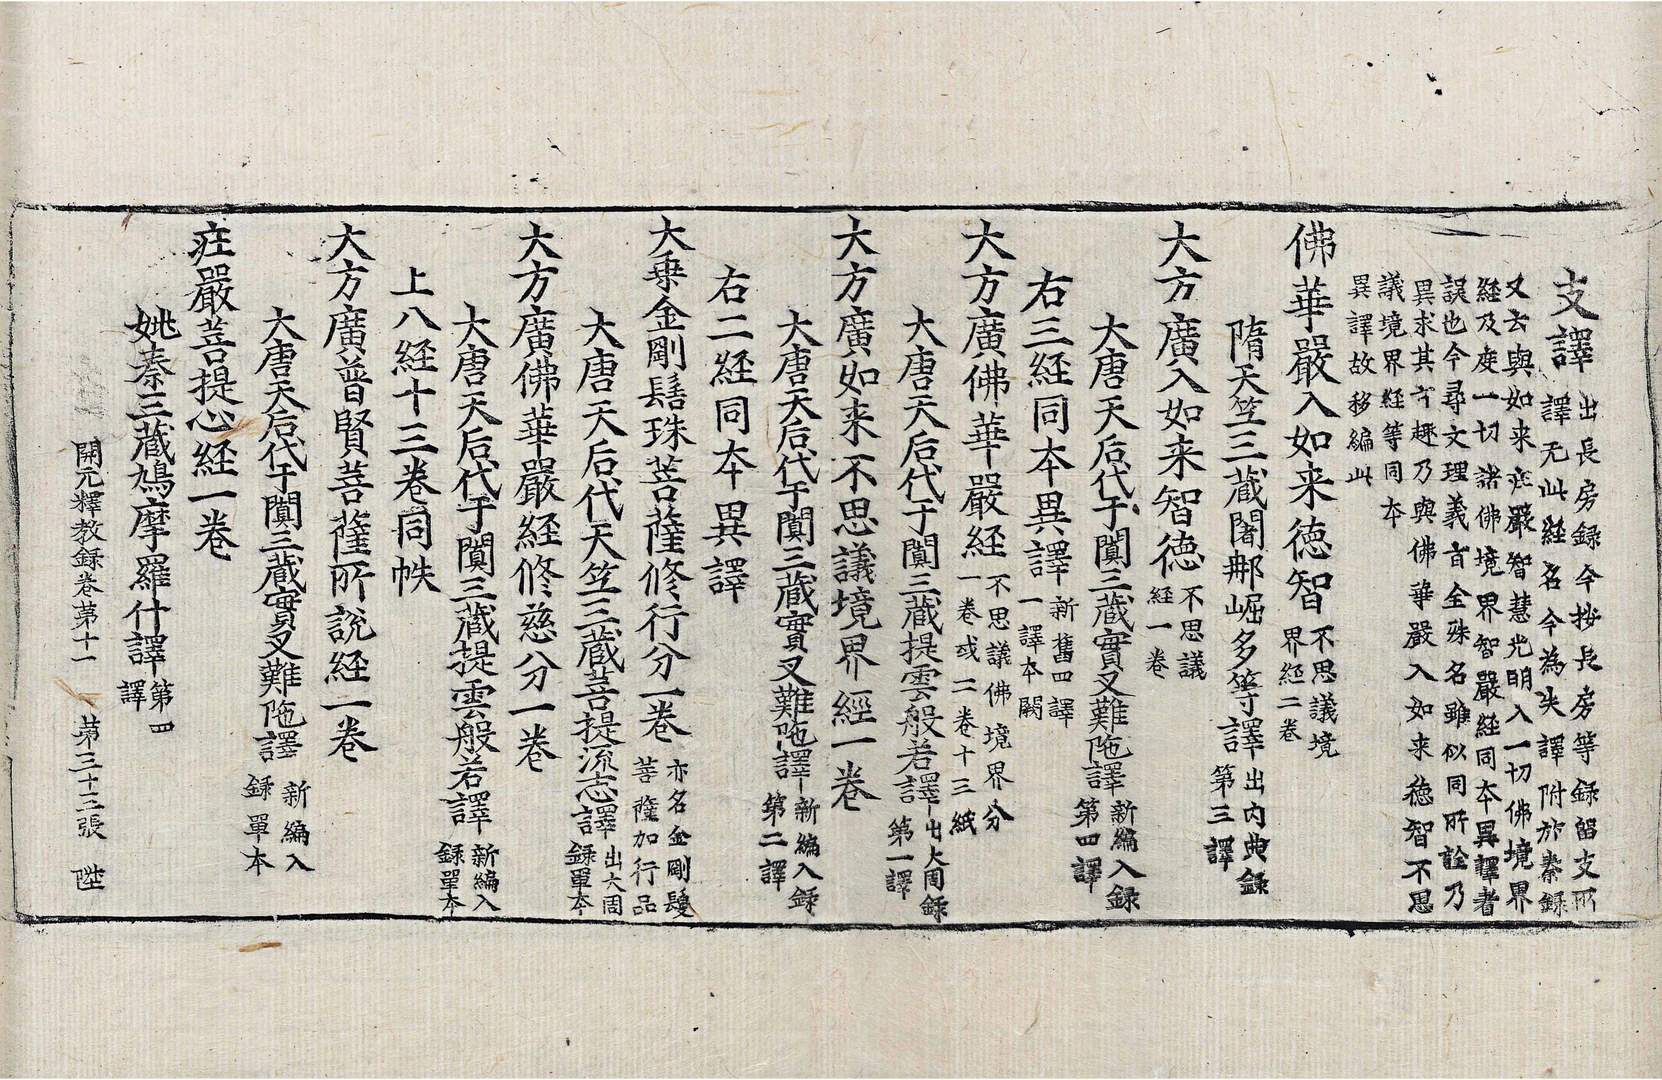 支譯出長房録今按長房等録留支所
譯无此經名今為失譯附於秦録
又云與如来庄嚴智慧光明入一切佛境界
経及度一切諸佛境界智嚴経同本異譯者
誤也今尋文理義旨全殊名雖似同所詮乃
異求其方趣乃與佛華嚴入如来德智不思
議境界経等同本
異譯故移編此
佛華嚴入如来德智不思議境
界経二卷
隋天竺三蔵闍那崛多等譯出内典録
第三譯
大方廣入如来智德不思議
経一卷
大唐天后代于闐三蔵實叉難陁譯新編入録
第四譯
右三経同本異譯新舊四譯
一譯本闕
大方廣佛華嚴経不思議佛境界分
一卷或二卷十三紙
大唐天后代于闐三蔵提雲般若譯出大周録
第一譯
大方廣如来不思議境界經一卷
大唐天后代于闐三蔵實叉難陁譯新編入録
第二譯
右二経同本異譯
大乗金剛髻珠菩薩修行分一卷亦名金剛鬘
菩薩加行品
大唐天后代天竺三蔵菩提流志譯出大周
録單本
大方廣佛華嚴経修慈分一卷
大唐天后代于闐三蔵提雲般若譯新編入
録單本
上八経十三卷同帙
大方廣普賢菩薩所説経一卷
大唐天后代于闐三蔵實叉難陁譯新編入
録單本
庄嚴菩提心経一卷
姚秦三蔵鳩摩羅什譯第四
譯
開元釋教録卷第十一 第三十三張 陞